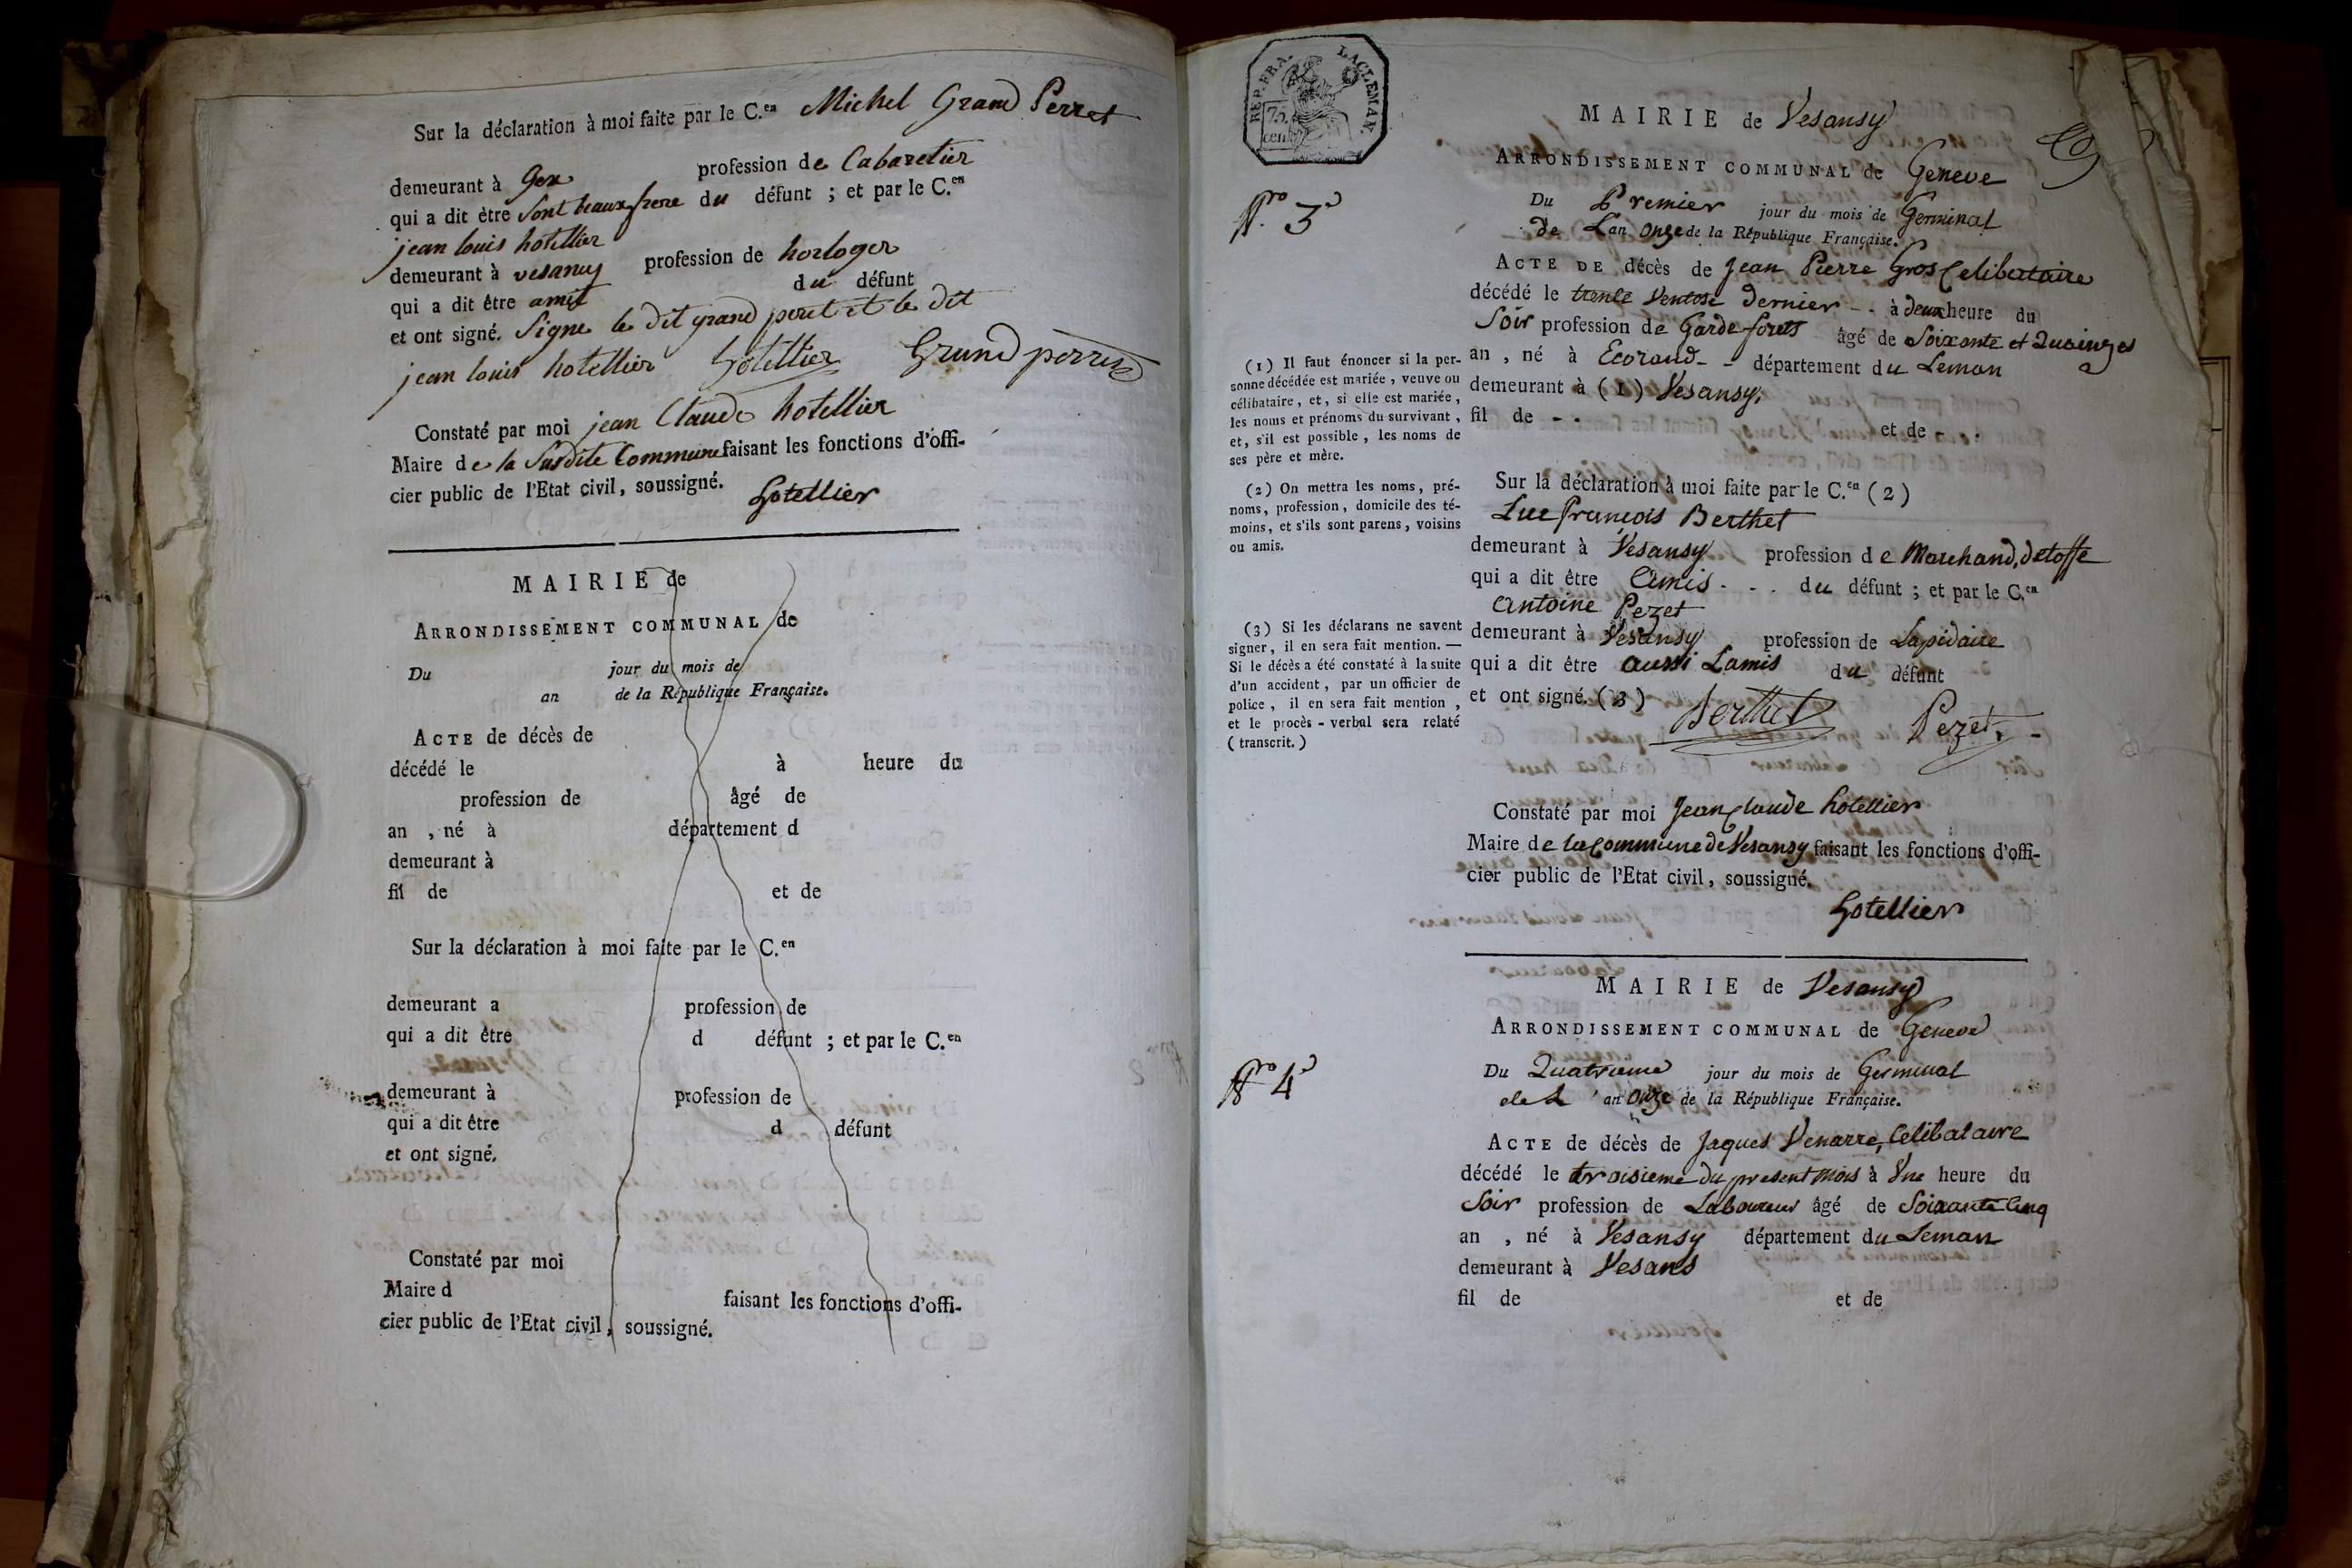 Sur la déclaration à moi faite par le C.en Michel Grand Perret
demeurant à Gex profession de Cabaretier
qui a dit être sont beaux frere du défunt ; et par le C.en
jean louis hotellier
demeurant à vesancy profession de horloger
qui a dit être amit du défunt
et ont signé. Signe le dit grand peret et le dit
jean louis hotellier hotellier Grand perret
Constaté par moi jean Claude hotellier
Maire de la Susdite Commune faisant les fonctions d'offi-
cier public de l'Etat civil, soussigné.
hotellier
MAIRIE de
ARRONDISSEMENT COMMUNAL de
Du jour du mois de
an de la République Française.
ACTE de décès de
décédé le à heure du
profession de âgé de
an , né à département d
demeurant à
fil de et de
Sur la déclaration à moi faite par le C.en
demeurant a profession de
qui a dit être d défunt ; et par le C.en
demeurant à profession de
qui a dit être d défunt
et ont signé.
Constaté par moi
Maire d faisant les fonctions d'offi-
cier public de l'Etat civil, soussigné.
REP. FRA. LAC LEMAN.
75. cent.
MAIRIE de Vesansy
ARRONDISSEMENT COMMUNAL de Geneve
Nro 3
Du Premier jour du mois de Germinal
de Lan onze de la République Française.
ACTE DE décès de Jean Pierre Gros Celibataire
décédé le trente Ventose dernier - - à deux heure du
Soir profession de Garde forets âgé de Soixante et Quainzes
an , né à Ecorand - - département du Leman
demeurant à (1) Vesansy.
fil de - - et de - -
(1) Il faut énoncer si la per-
sonne décédée est mariée, veuve ou
célibataire, et, si elle est mariée,
les noms et prénoms du survivant,
et, s'il est possible, les noms de
ses père et mère.
Sur la déclaration à moi faite par le C.en (2)
Luc François Berthet
demeurant à Vesansy profession de Marchand, detoffe
qui a dit être Amis - - . du défunt ; et par le C.en
Antoine Pezet
demeurant à Vesansy profession de Lapidaire
qui a dit être aussi Lamis du défunt
et ont signé. (3) Berthet Pezet, -
(2) On mettra les noms, pré-
noms, profession, domicile des té-
moins, et s'ils sont parens, voisins
ou amis.
(3) Si les déclarans ne savent
signer, il en sera fait mention. —
Si le décès a été constaté à la suite
d'un accident, par un officier de
police, il en sera fait mention,
et le procès-verbal sera relaté
( transcrit. )
Constaté par moi Jean Claude hotellier
Maire de la Commune de Vesansy faisant les fonctions d'offi-
cier public de l'Etat civil, soussigné.
hotellier
MAIRIE de Vesansy
ARRONDISSEMENT COMMUNAL de Geneve
Nro 4
Du Quatrieme jour du mois de Germinal
de L' an onze de la République Française.
ACTE de décès de Jaques Venarre, Celibataire
décédé le troisieme du present mois à Une heure du
Soir profession de Laboureur âgé de Soixante Cinq
an , né à Vesansy département du Leman
demeurant à Vesans
fil de et de